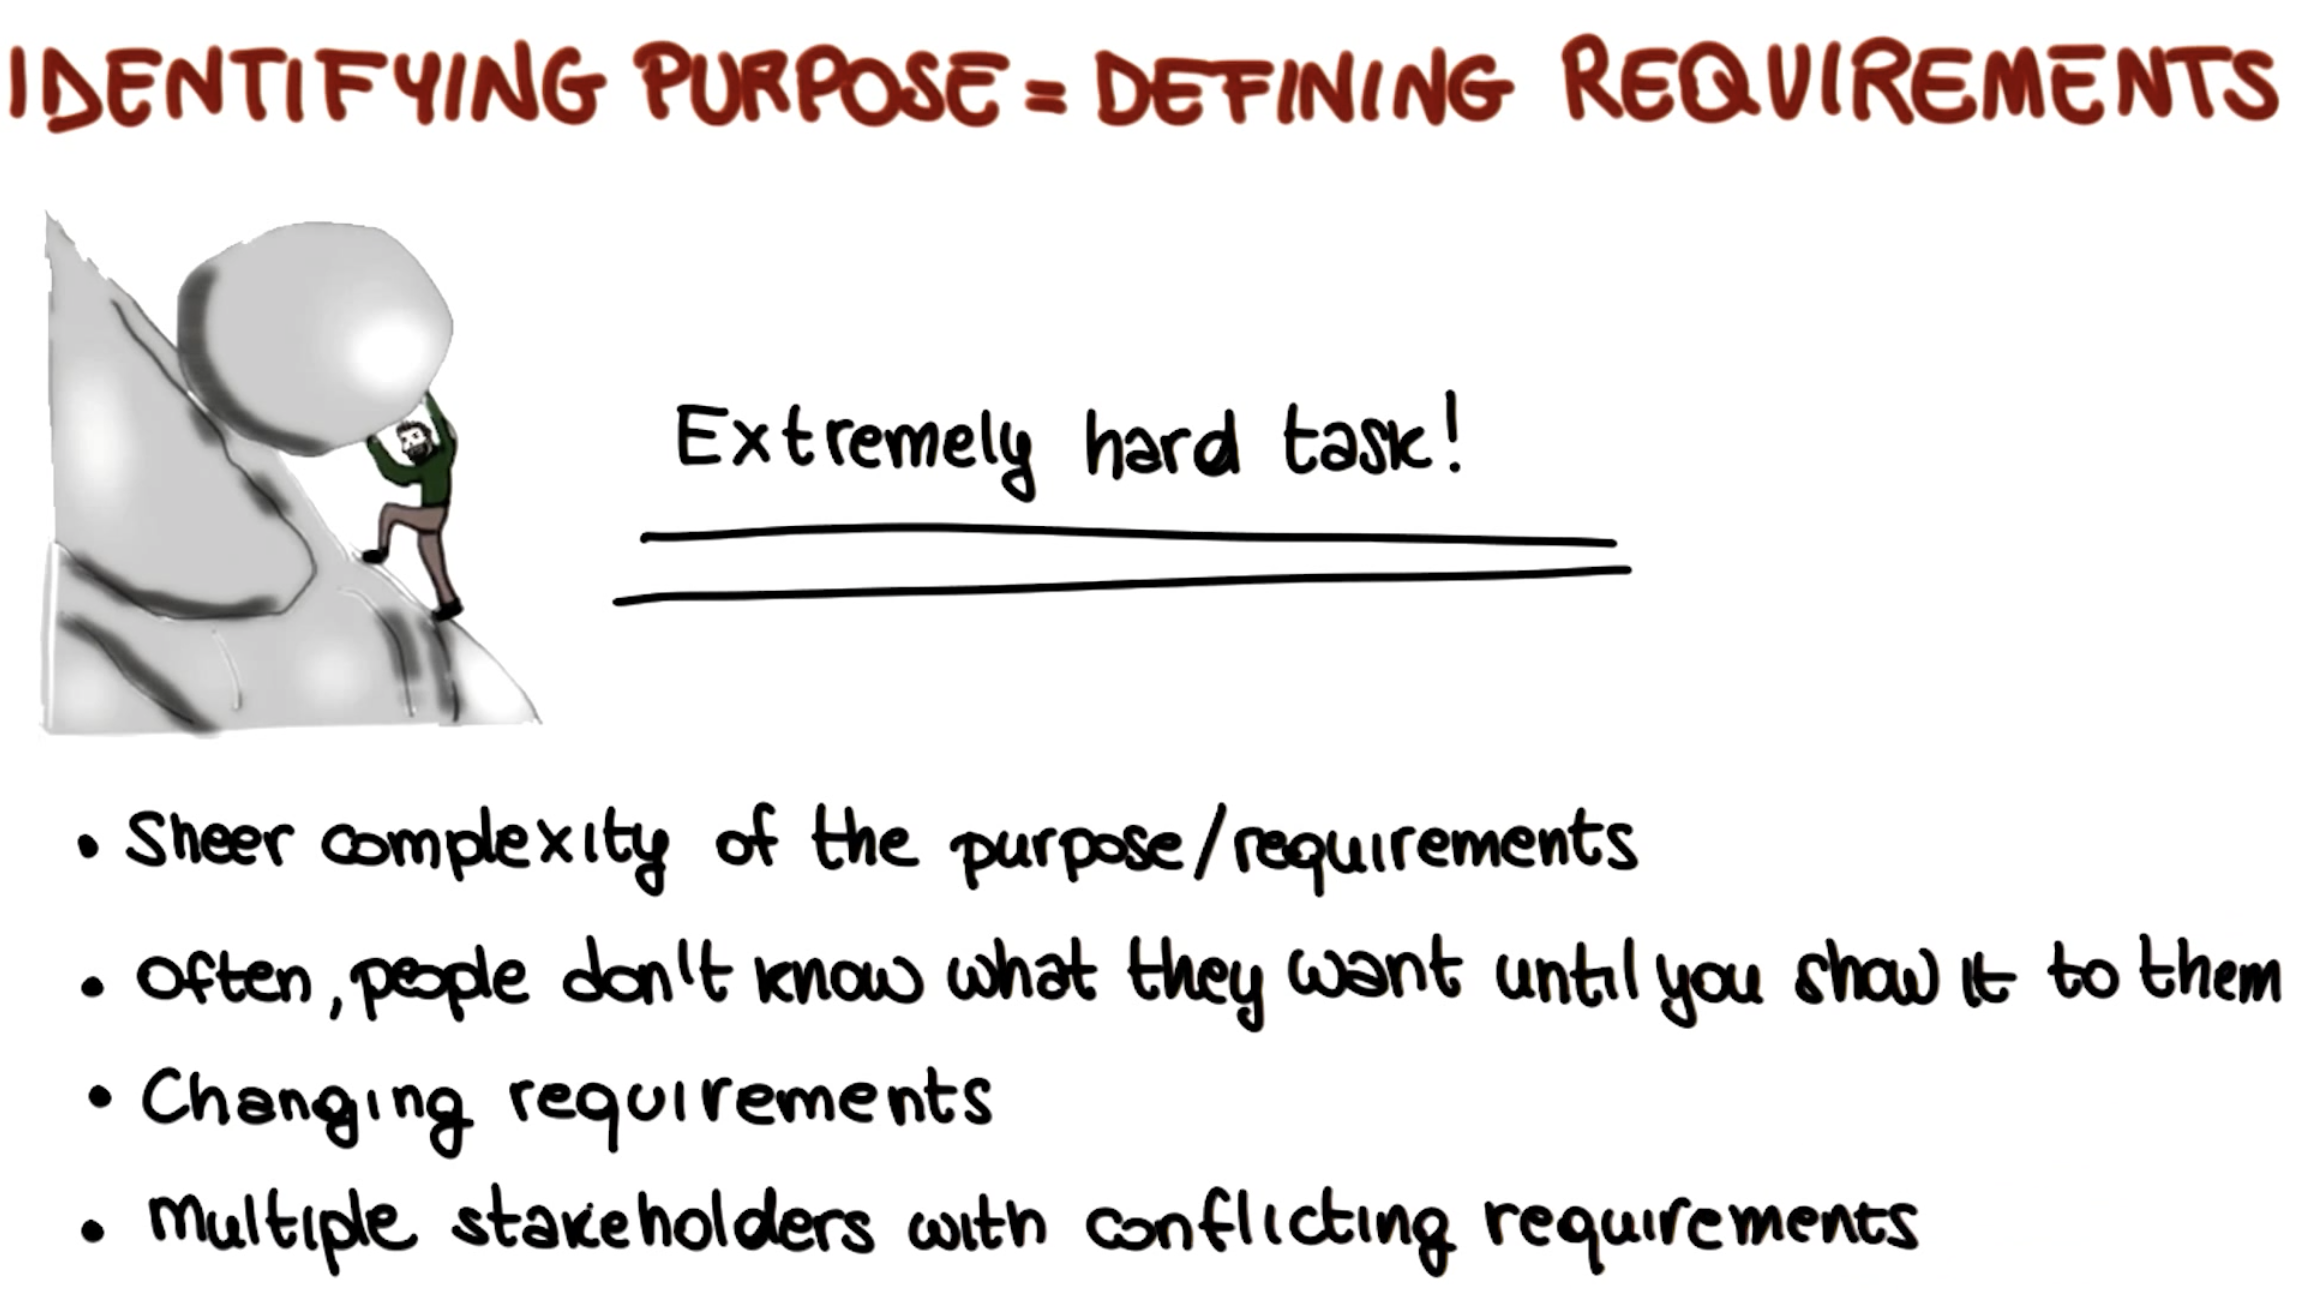 IDENTIFYING PURPOSE = DEFINING REQUIREMENTS
Extremely hard task!
• Sheer complexity of the purpose/requirements
• Often, people don't know what they want until you show it to them
• Changing requirements
• Multiple stakeholders with conflicting requirements